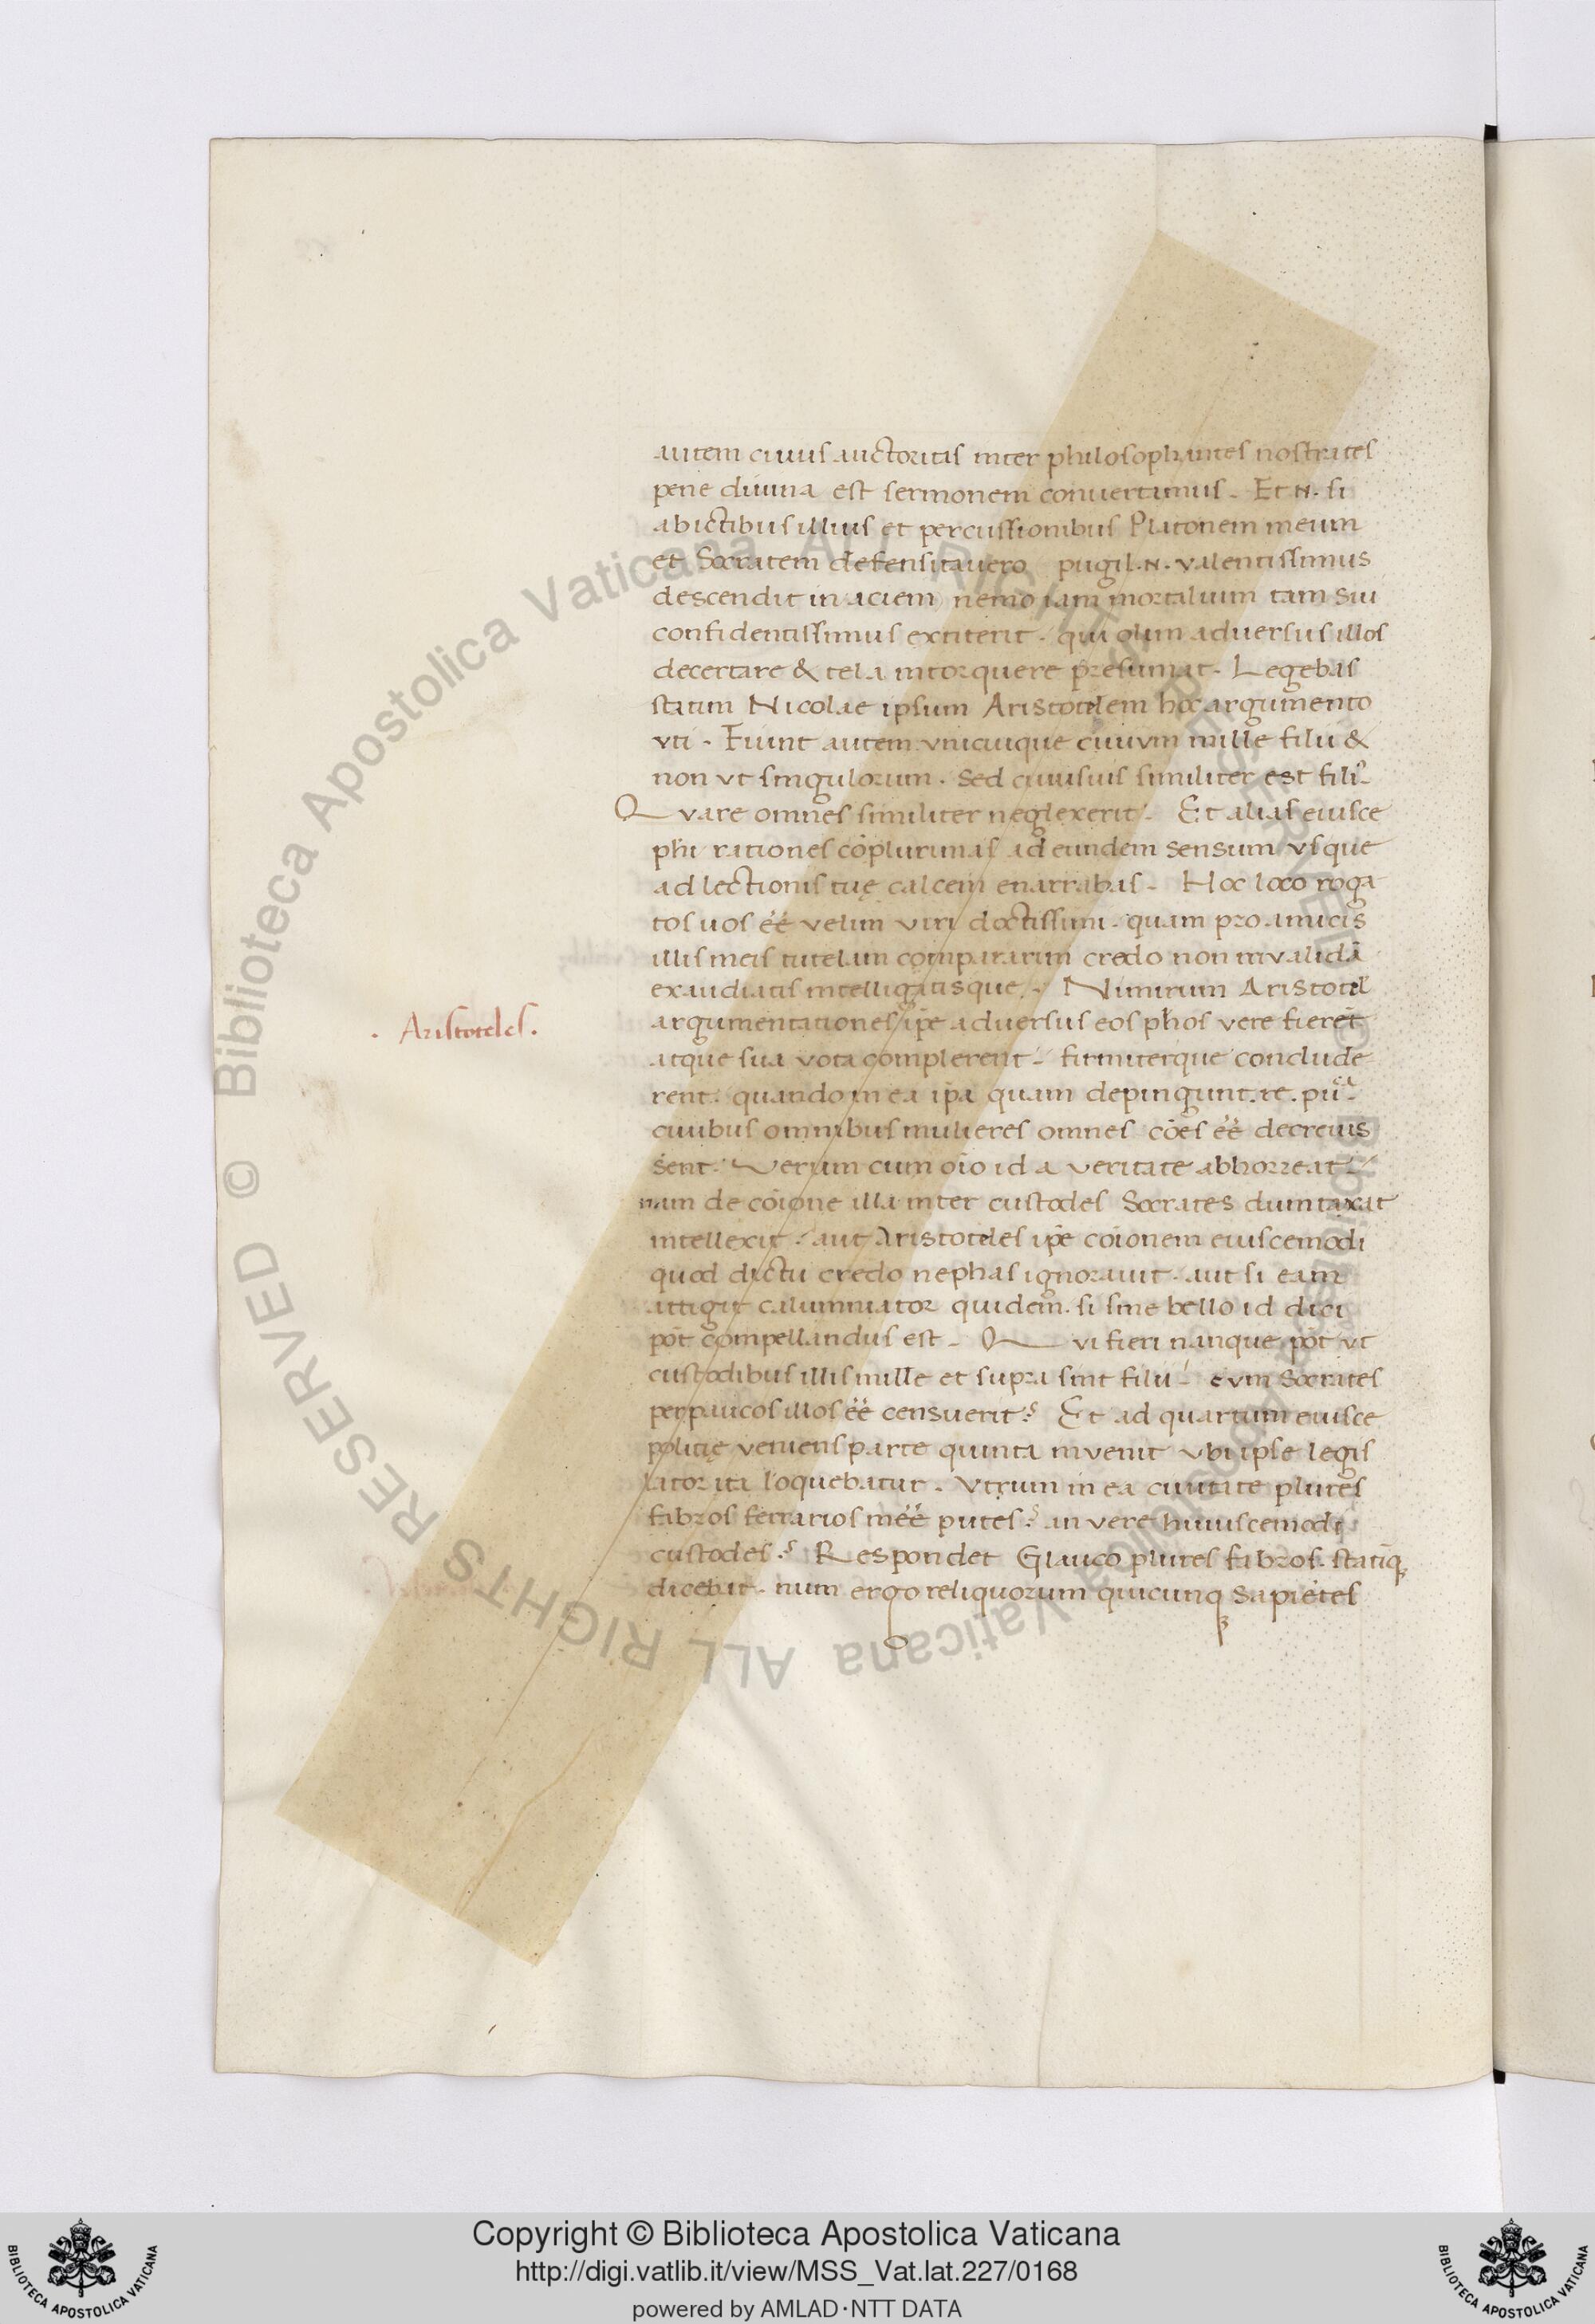 autem cuius auctoritas inter philosophantes nostrates
pene diuina est sermonem conuertamus. Et .N. si
ab ictibus illius et percussionibus Platonem meum
et Socratem defensitauero pugil .N. valentissimus
descendit in aciem nemo iam mortalium tam sui
confidentissimus extiterit. qui olim aduersus illos
decertare & tela intorquere presumat. Legebas
statim Nicolae ipsum Aristotelem hoc argumento
vti. Fiunt autem vnicuique ciuium mille filii &
non vt singulorum. Sed cuiusuis similiter est fili9.
Quare omnes similiter neglexerit. Et alias eiusce
phi rationes cōplurimas ad eundem sensum vsque
ad lectionis tuę calcem enarrabas. Hoc loco roga
tos uos eē velim viri doctissimi. quam pro amicis
illis meis tutelam compararim credo non inualidā
exaudiatis intelligatisque. Nimirum Aristotel'
. Aristoteles.
argumentationes ipe aduersus eos phos vere fieret
atque sua vota complerent. firmiterque conclude
rent. quando in ea ipa quam depingunt .re. pu.ca
ciuibus omnibus mulieres omnes cōes eē decreuis
sent. Verum cum oīo id a veritate abhorreat.
nam de cōione illa inter custodes Socrates dumtaxat
intellexit. aut Aristoteles ipe cōionem eiuscemodi
quod dictu credo nephas ignorauit. aut si eam
attigit calumniator quidem. si sine bello id dici
pōt compellandus est. Qui fieri nanque pōt vt
custodibus illis mille et supra sint filii. cum Socrates
perpaucos illos eē censuerit? Et ad quartum eiusce
politię veniens parte quinta invenit vbi ipse legis
lator ita loquebatur. Vtrum in ea ciuitate plures
fabros ferrarios ineē putes? an vere huiuscemodi
custodes? Respondet Glauco plures fabros. statiq;
dicebat. num ergo reliquorum quicunq; sapiētes
Copyright © Biblioteca Apostolica Vaticana
http://digi.vatlib.it/view/MSS_Vat.lat.227/0168
powered by AMLAD·NTT DATA
BIBLIOTECA APOSTOLICA VATICANA
BIBLIOTECA APOSTOLICA VATICANA
© Biblioteca Apostolica Vaticana ALL RIGHTS RESERVED
© Biblioteca Apostolica Vaticana ALL RIGHTS RESERVED